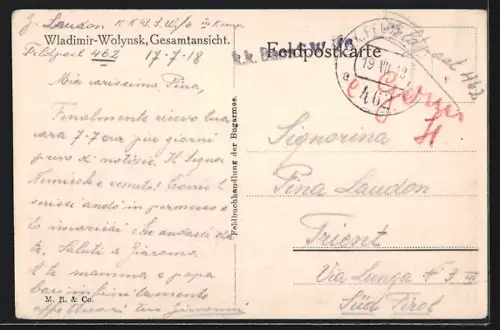 G. Laudon K.K.
Feldpost 462 17-7-18
Wladimir-Wolynsk, Gesamtansicht.
Mia carissima Pina,
Finalmente ricevo tua
cara 7-7 ora più giorni
privo di notizie. Il Signor
è venuto! Come ti
scrissi andò in permesso e
lo incaricai che andasse da
te. Saluti a Giacomo.
A te mamma e papa
baci infinitamente
affettuosi tuo Giovanni
M. R. & Co.
Feldbuchhandlung der Bugarmee.
Feldpostkarte
Feldpost 462
462
Signorina
Pina Laudon
Trient
Via Lunga № 3 III
Süd Tirol